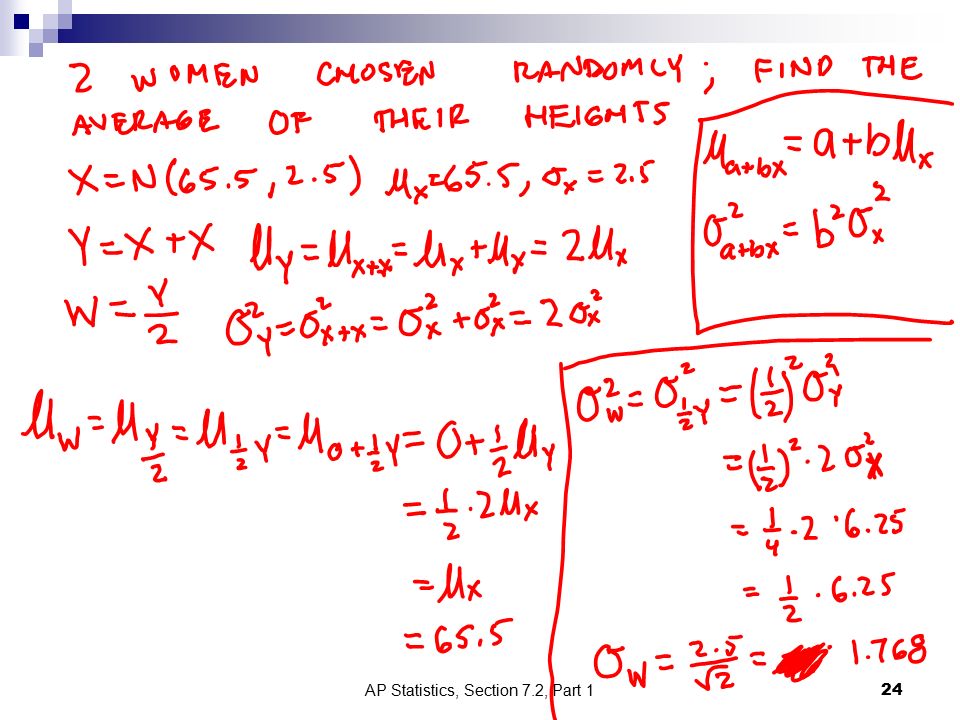 2 WOMEN CHOSEN RANDOMLY; FIND THE
AVERAGE OF THEIR HEIGHTS
X=N(65.5, 2.5) μx=65.5, σx = 2.5
Y=X+X μY=μx+x=μx+μx=2μx
W=Y/2 σ²Y=σ²x+x=σ²x+σ²x=2σ²x
μa+bx=a+bμx
σ²a+bx=b²σ²x
μW=μY/2=μ½Y=μ0+½Y=0+½μY
=½·2μx
=μx
=65.5
σ²W=σ²½Y=(½)²σ²Y
=(½)²·2σ²x
=¼·2·6.25
=½·6.25
σW=2.5/√2= 1.768
AP Statistics, Section 7.2, Part 1
24